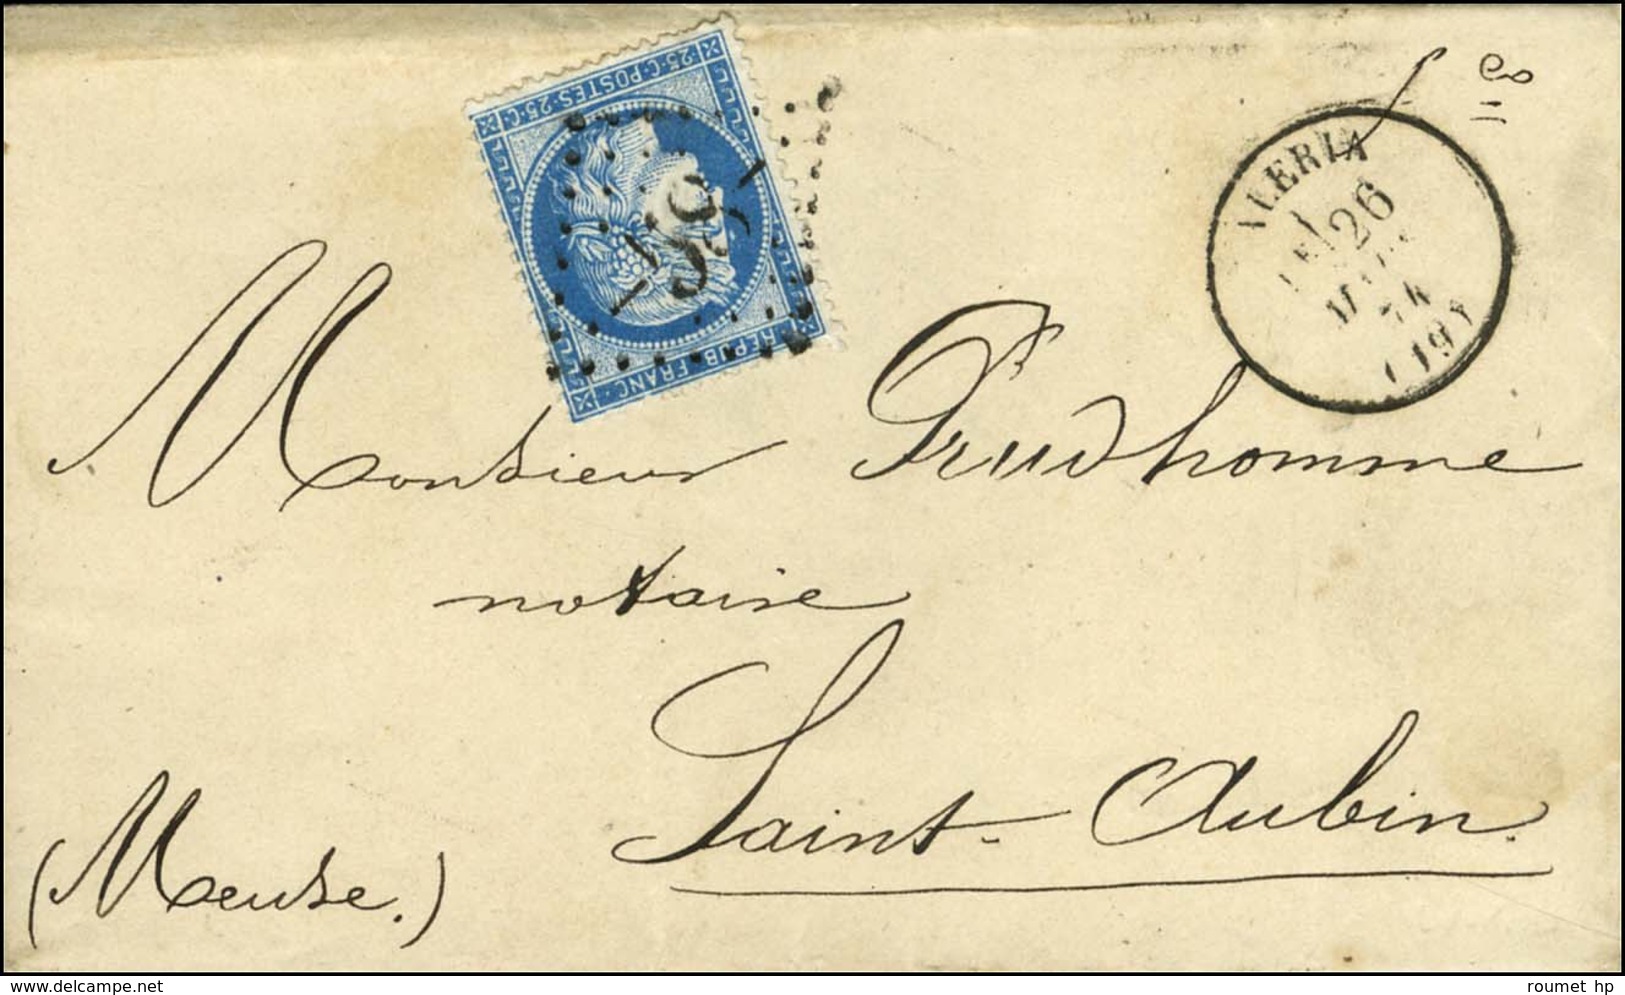 25·C·POSTES·25·C
REPUB·FRANC·
ALERIA
26
74
(19)
Monsieur Prudhomme
notaire
Saint-Aubin.
(Meuse.)
www.delcampe.net
roumet hp